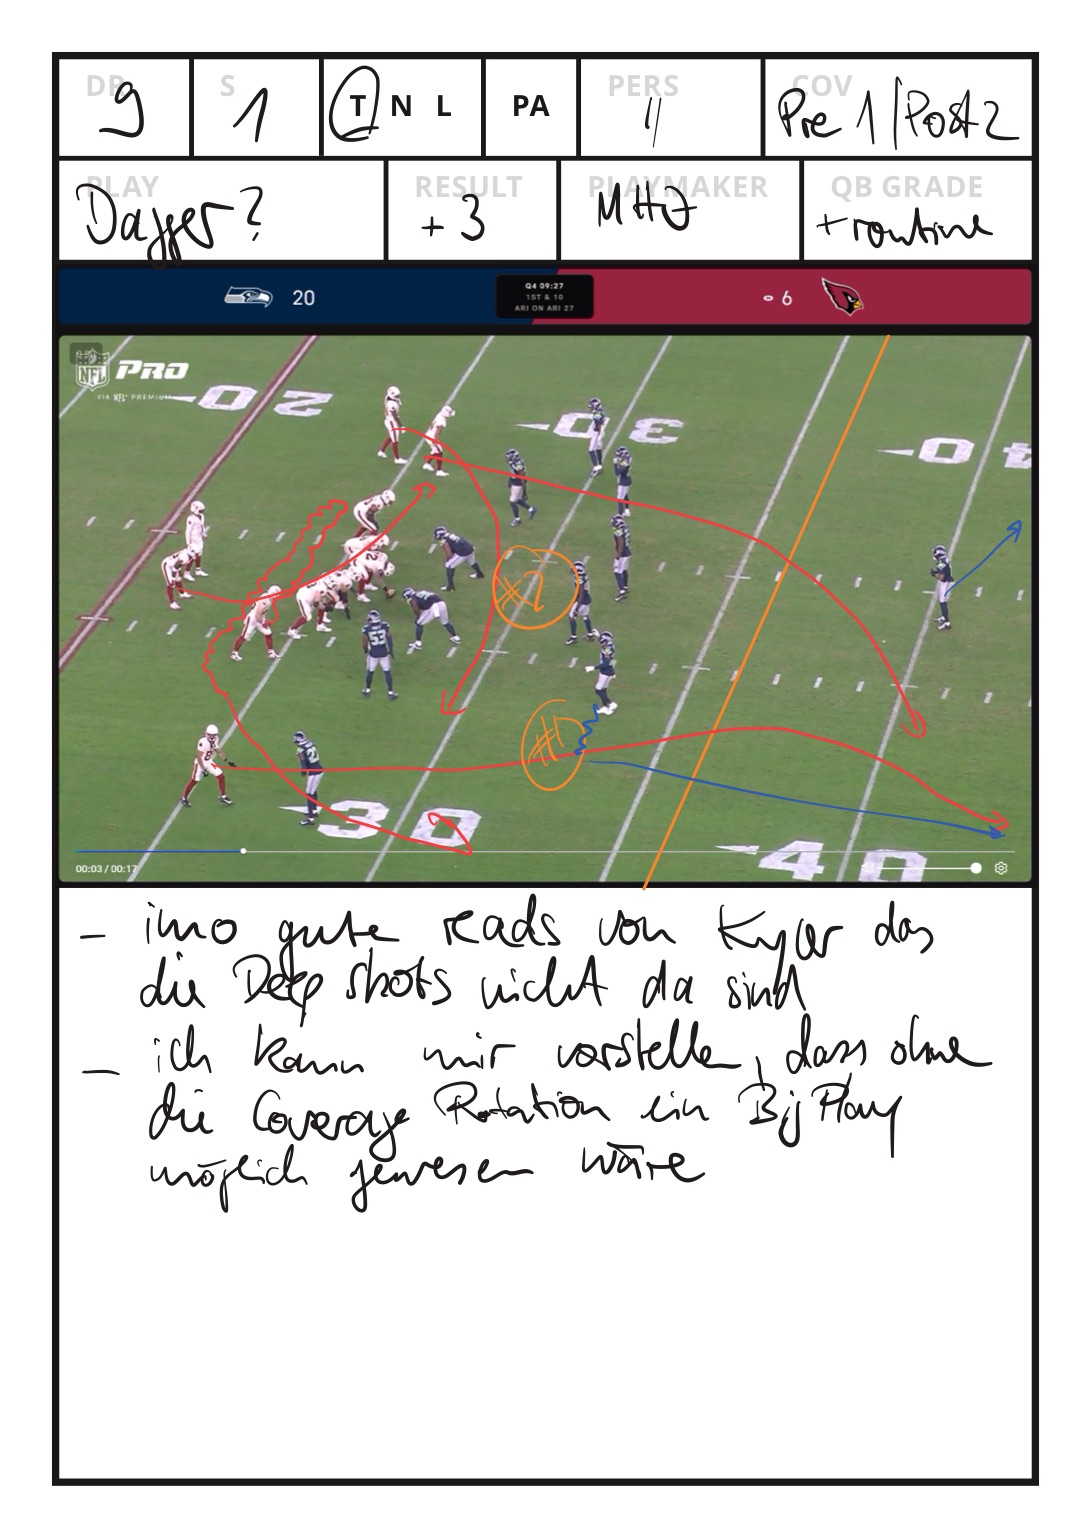 DR S T N L PA PERS COV
9 1 11 Pre 1/Post 2
PLAY RESULT PLAYMAKER QB GRADE
Dagger? +3 MHJ + routine
20 Q4 09:27 6
1ST & 10
ARI ON ARI 27
NFL PRO
VIA NFL+ PREMIUM
20
30
40
#2
53
#1
8
27
30
40
00:03 / 00:17
- imo gute reads von Kyler das
die Deep shots nicht da sind
- ich kann mir vorstellen, dass ohne
die Coverage Rotation ein Big Play
möglich gewesen wäre